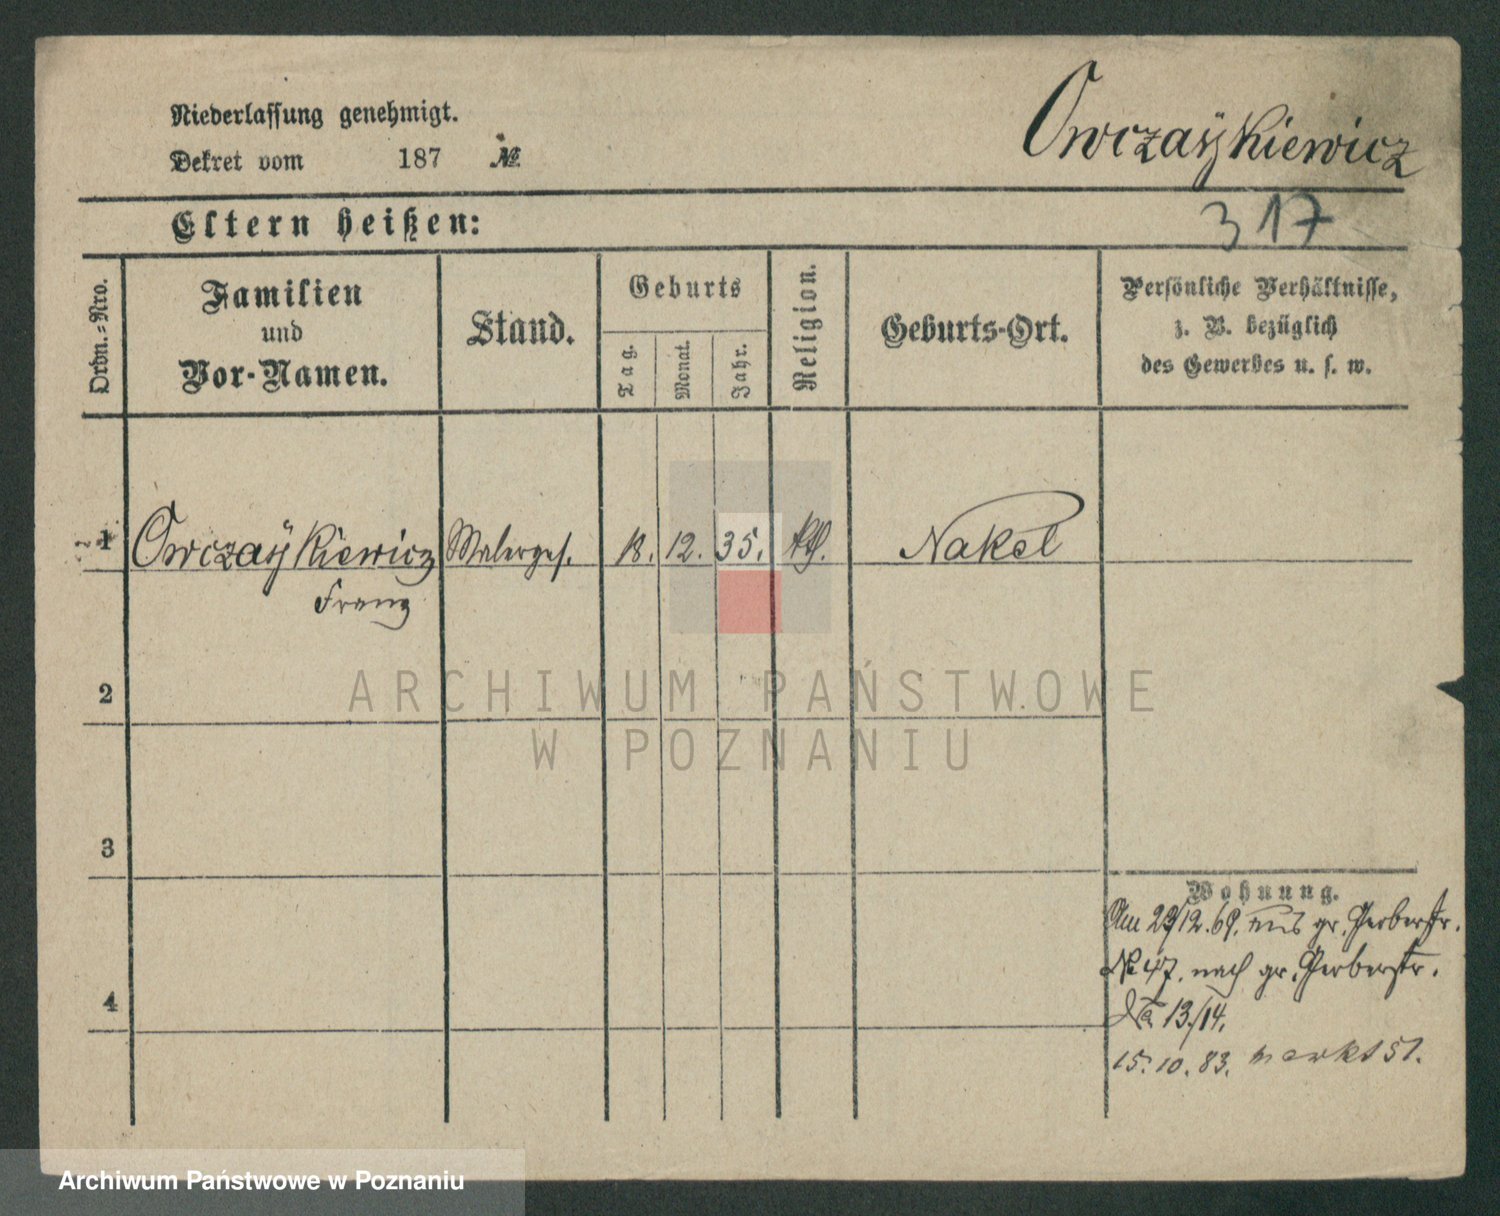 Niederlassung genehmigt.
Dekret vom 187 №
Owczaÿkiewicz
Eltern heißen:
317
Ordn.-Nro.
Familien
und
Vor-Namen.
Stand.
Geburts
Tag.
Monat.
Jahr.
Religion.
Geburts-Ort.
Persönliche Verhältnisse,
z. B. bezüglich
des Gewerbes u. s. w.
1 Owczaÿkiewicz Malerges. 18. 12. 35. kth. Nakel
Franz
2
ARCHIWUM PAŃSTWOWE
W POZNANIU
3
4
Wohnung.
Am 29/12. 69. aus gr. Gerberstr.
№ 47. nach gr. Gerberstr.
№ 13./14.
15. 10. 83. Markt 51.
Archiwum Państwowe w Poznaniu